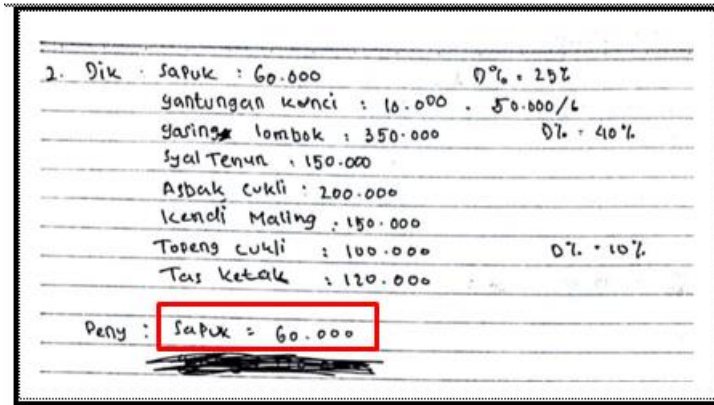 2. Dik : Sapuk : 60.000 D% = 25%
gantungan kunci : 10.000 . 50.000/6
gasing lombok : 350.000 D% = 40%
Syal Tenun : 150.000
Asbak cukli : 200.000
kendi Maling : 150.000
Topeng cukli : 100.000 D% = 10%
Tas ketak : 120.000
Peny : Sapuk = 60.000